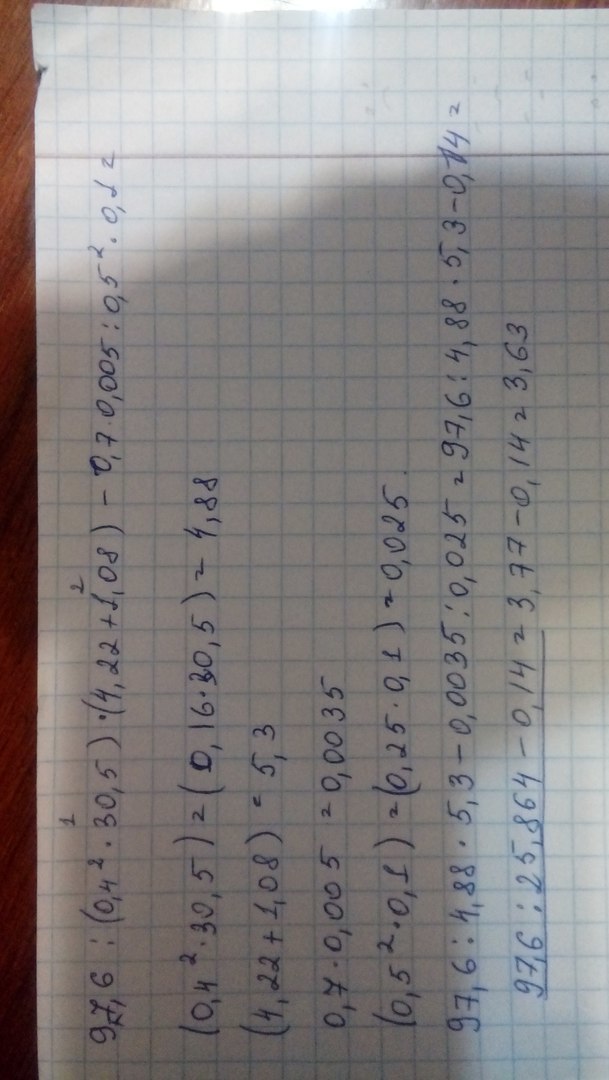 1 2
97,6 : (0,4² · 30,5) · (4,22 + 1,08) - 0,7 · 0,005 : 0,5² · 0,1 =
(0,4² · 30,5) = (0,16 · 30,5) = 4,88
(4,22 + 1,08) = 5,3
0,7 · 0,005 = 0,0035
(0,5² · 0,1) = (0,25 · 0,1) = 0,025.
97,6 : 4,88 · 5,3 - 0,0035 : 0,025 = 97,6 : 4,88 · 5,3 - 0,14 =
97,6 : 25,864 - 0,14 = 3,77 - 0,14 = 3,63